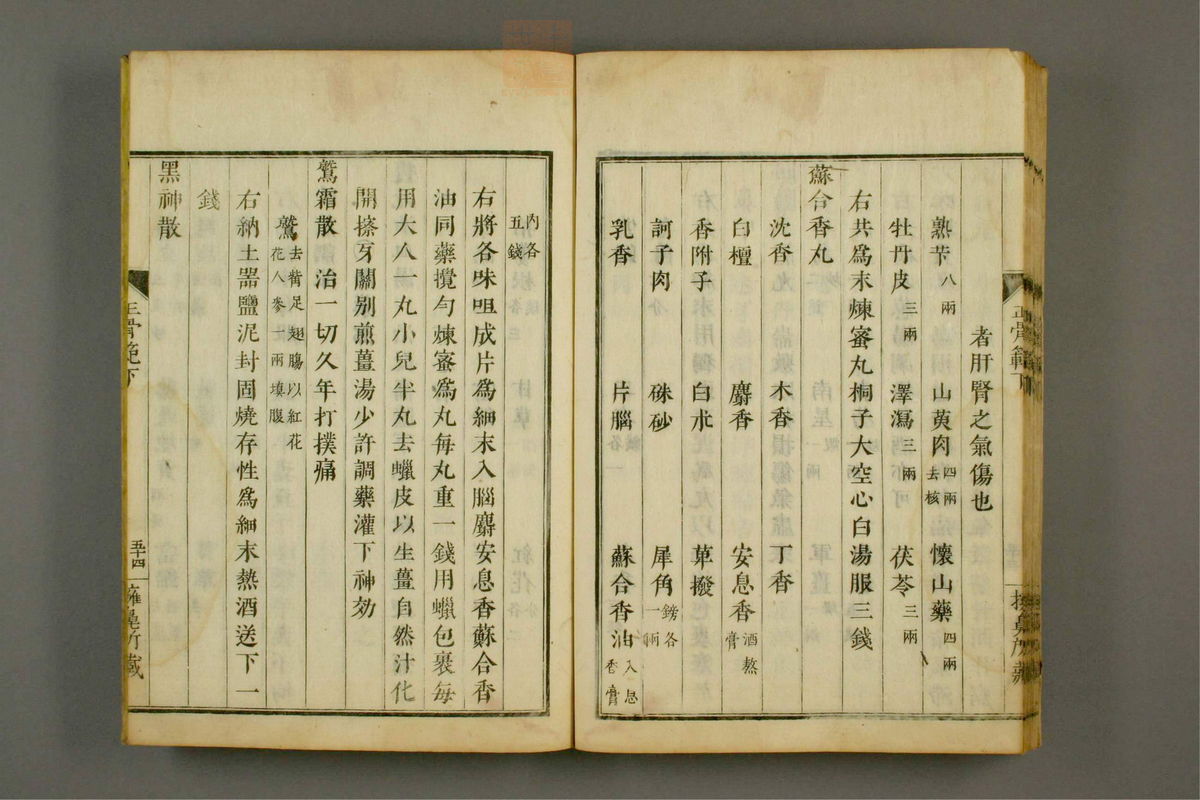 者肝腎之氣傷也
熟芐八兩 山萸肉四兩去核 懷山藥四兩
牡丹皮三兩 澤瀉三兩 茯苓三兩
右共爲末煉蜜丸桐子大空心白湯服三錢
蘇合香丸
沈香 木香 丁香
白檀 麝香 安息香酒熬膏
香附子 白朮 蓽撥
訶子肉 硃砂 犀角鎊各一兩
乳香 片腦 蘇合香油入息香膏
內各五錢
右將各味咀成片爲細末入腦麝安息香蘇合香
油同藥攪勻煉蜜爲丸每丸重一錢用蠟包裹每
用大人一丸小兒半丸去蠟皮以生薑自然汁化
開搽牙關別煎薑湯少許調藥灌下神効
鷲霜散 治一切久年打撲痛
鷲去觜足翅腸以紅花花八參一兩填腹
右納土器鹽泥封固燒存性爲細末熱酒送下一
錢
黑神散
正骨範下
五十四